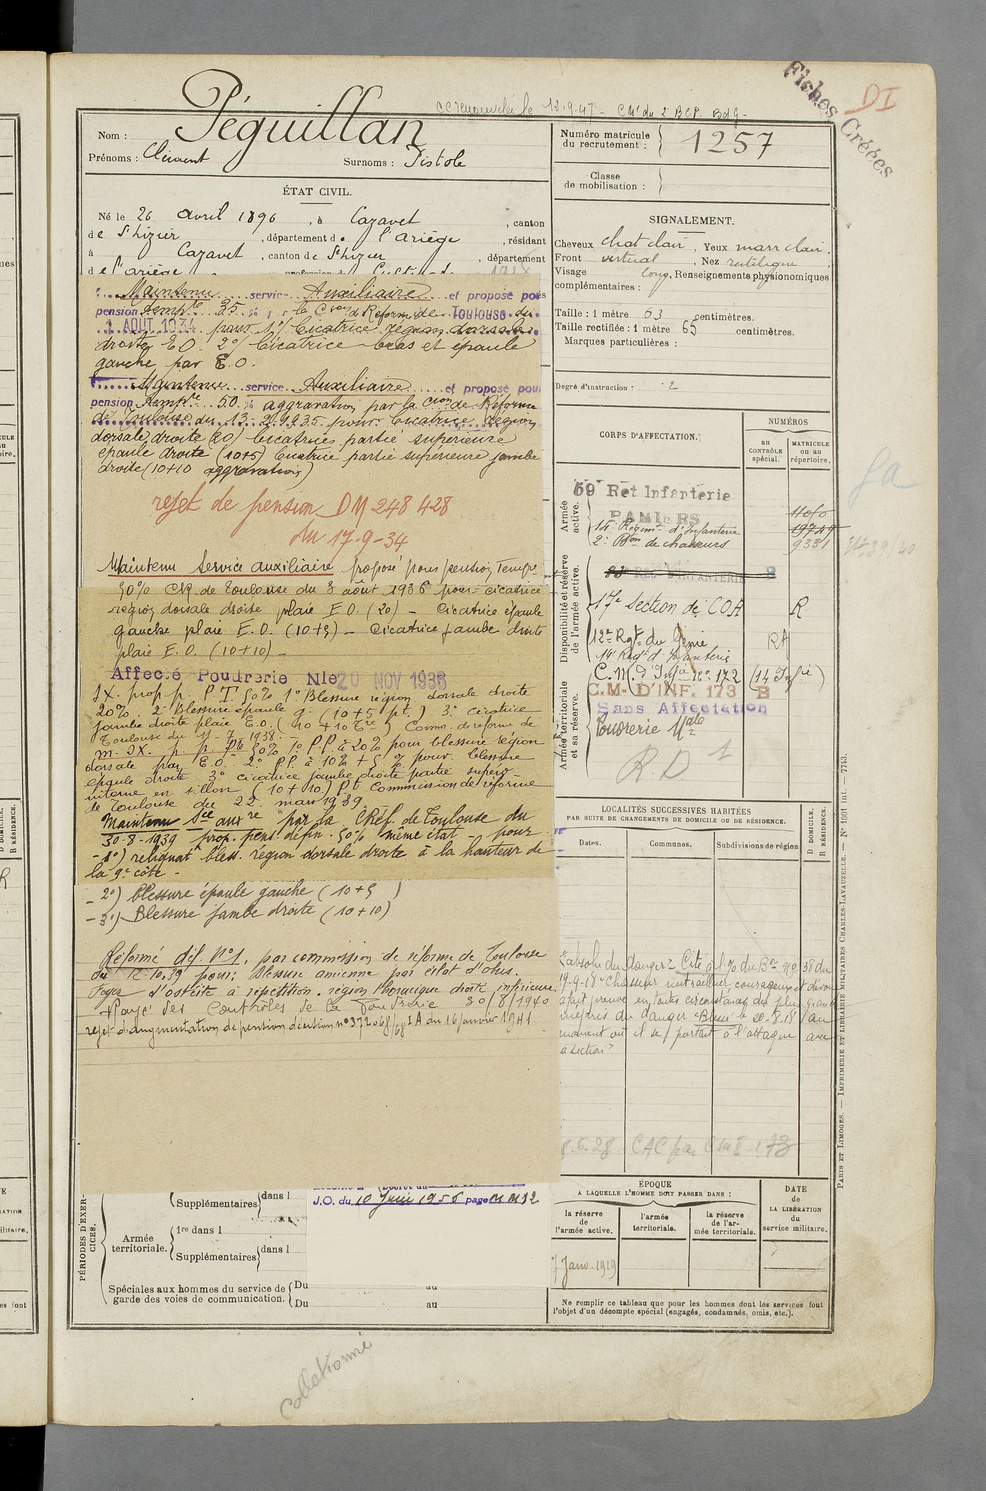 Fiches Créées
DI
CC renouvelée le 12-9-47 - CM du 2e BCP. Bdg -
Nom : Péguillan
Prénoms : Clément Surnoms : Pistole
Numéro matricule du recrutement : 1257
Classe de mobilisation :
ÉTAT CIVIL.
Né le 26 avril 1896, à Cazavet, canton
de St Lizier, département de l'Ariège, résidant
à Cazavet, canton de St Lizier, département
de l'Ariège
SIGNALEMENT.
Cheveux chat clair, Yeux marr clair.
Front vertical, Nez rectiligne
Visage long, Renseignements physionomiques
complémentaires :
Taille : 1 mètre 63 centimètres.
Taille rectifiée : 1 mètre 65 centimètres.
Marques particulières :
Degré d'instruction : 2
Maintenu service Auxiliaire et proposé pour
pension Tempre 35 % par la Con de Réforme de Toulouse du
1 AOUT 1934 pour 1°/ Cicatrice région dorsale
droite E.O. 2°/ Cicatrice bras et épaule
gauche par E.O.
Maintenu service Auxiliaire et proposé pour
pension Tempre 50 % aggravation par la Cion de Réforme
de Toulouse du 13-2-1935 pour Cicatrice région
dorsale droite (20) Cicatrices partie supérieure
épaule droite (10+5) Cicatrice partie supérieure jambe
droite (10+10 aggravation)
rejet de pension DM 248 428
du 17-9-34
Maintenu Service auxiliaire proposé pour pension Tempre
50% CR de Toulouse du 3 août 1936 pour cicatrice
région dorsale droite plaie E.O. (20) - Cicatrice épaule
gauche plaie E.O. (10+5) - Cicatrice jambe droite
plaie E.O. (10+10) -
Affecté Poudrerie Nle 20 NOV 1936
SX. prop. p. P.T. 50% 1° Blessure région dorsale droite
20% 2° Blessure épaule g. (10+5 pt) 3° Cicatrice
jambe droite plaie E.O. (10+10 Tre) Comm. de réforme de
Toulouse du 11-7-1938.
m. SX. p. p. Pte 50% 1° P.P. à 20% pour blessure région
dorsale par E.O. 2° P.P. à 10% + 5 % pour blessure
épaule droite 3° cicatrice jambe droite partie supéro-
interne en sillon (10+10) Pt Commission de réforme
de Toulouse du 22 mars 1939
Maintenu Sce auxre par la CRéf. de Toulouse du
30-8-1939 prop. pens. défin. 50% même état - pour
-1°) reliquat bless. région dorsale droite à la hauteur de
la 9e côte -
-2°) blessure épaule gauche (10+5)
-3°) Blessure jambe droite (10+10)
Réformé déf. N°1, par commission de réforme de Toulouse
du 12.10.39 pour : blessure ancienne par éclat d'obus.
Foyer d'ostéite à répétition. région thoracique droite inférieure
Rayé des Contrôles de la Poudrerie 30/8/1940
rejet d'augmentation de pension décision n° 372068/68 IA du 16 janvier 1941
CORPS D'AFFECTATION.
NUMÉROS
au CONTRÔLE spécial.
MATRICULE ou au répertoire.
Armée active.
59 Rét Infanterie
PAMIERS
14e Régiment d'Infanterie
2e Bon de chasseurs
9331
Disponibilité et réserve de l'armée active.
17e Section de COA R
12e Rgt du Génie
14e Regt d'Infanterie
Armée territoriale et sa réserve.
C. M. d'Infie No 172 (14 Infie)
C.M. D'INF. 173 B
Sans Affectation
Poudrerie Nale
R.D 1
LOCALITÉS SUCCESSIVES HABITÉES
PAR SUITE DE CHANGEMENTS DE DOMICILE OU DE RÉSIDENCE.
Dates.
Communes.
Subdivisions de région
D DOMICILE.
R RÉSIDENCE.
absolu du danger" Cité à l'o/ du Bon N° 58 du
19-9-18 "Chasseur mitrailleur courageux et dévoué
a fait preuve en toutes circonstances du plus grand
mépris du danger Blessé le 20-8-18 au
moment où il se portait à l'attaque avec
sa section"
8.6.28 CAC par CMI 173
ÉPOQUE
A LAQUELLE L'HOMME DOIT PASSER DANS :
la réserve de l'armée active.
l'armée territoriale.
la réserve de l'armée territoriale.
DATE DE LA LIBÉRATION du service militaire.
7 Janv. 1919
Ne remplir ce tableau que pour les hommes dont les services font
l'objet d'un décompte spécial (engagés, condamnés, omis, etc.).
PÉRIODES D'EXERCICES.
Supplémentaires dans l
J.O. du 10 Juin 1956 page
Armée territoriale.
1re dans l
Supplémentaires dans l
Spéciales aux hommes du service de garde des voies de communication.
Du au
Du au
Collationné
PARIS ET LIMOGES. — IMPRIMERIE ET LIBRAIRIE MILITAIRES CHARLES-LAVAUZELLE. — N° 1001 int. — 7743.